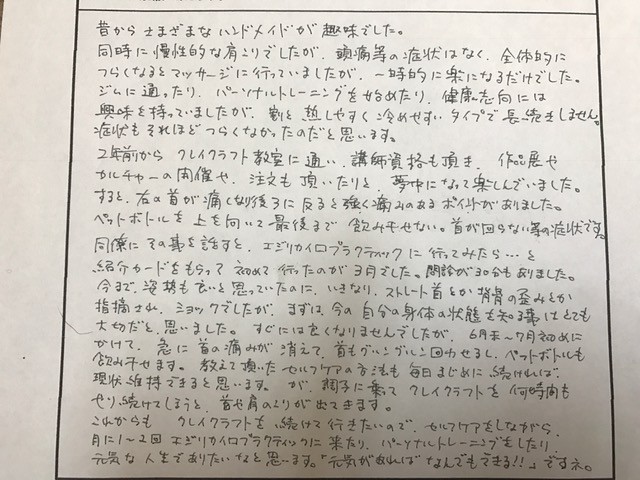 昔からさまざまなハンドメイドが趣味でした。
同時に慢性的な肩こりでしたが、頭痛等の症状はなく、全体的に
つらくなるとマッサージに行っていましたが、一時的に楽になるだけでした。
ジムに通ったり、パーソナルトレーニングを始めたり、健康志向には
興味を持っていましたが、割と熱しやすく冷めやすいタイプで長続きしません。
症状もそれほどつらくなかったのだと思います。
2年前からクレイクラフト教室に通い、講師資格も頂き、作品展や
カルチャーの開催や、注文も頂いたりと、夢中になって楽しんでいました。
すると、右の首が痛くなり後ろに反ると強く痛みのあるポイントがありました。
ペットボトルを上を向いて最後まで飲み干せない。首が回らない等の症状です。
同僚にその事を話すと、エジリカイロプラクティックに行ってみたら…と
紹介カードをもらって初めて行ったのが3月でした。問診が30分もありました。
今まで、姿勢も良いと思っていたのに、いきなり、ストレート首とか背骨の歪みとか
指摘され、ショックでしたが、まずは今の自分の身体の状態を知る事はとても
大切だと思いました。すぐには良くなりませんでしたが、6月末〜7月初めに
かけて、急に首の痛みが消えて、首もグルングルン回わせるし、ペットボトルも
飲み干せます。教えて頂いたセルフケアの方法も毎日まじめに続ければ、
現状維持できると思います。が、調子に乗ってクレイクラフトを何時間も
やり続けてしまうと、首や肩のこりが出てきます。
これからもクレイクラフトを続けて行きたいので、セルフケアをしながら、
月に1〜2回エジリカイロプラクティックに来たり、パーソナルトレーニングをしたり、
元気な人生でありたいなと思います。"元気があればなんでもできる!!"ですネ。